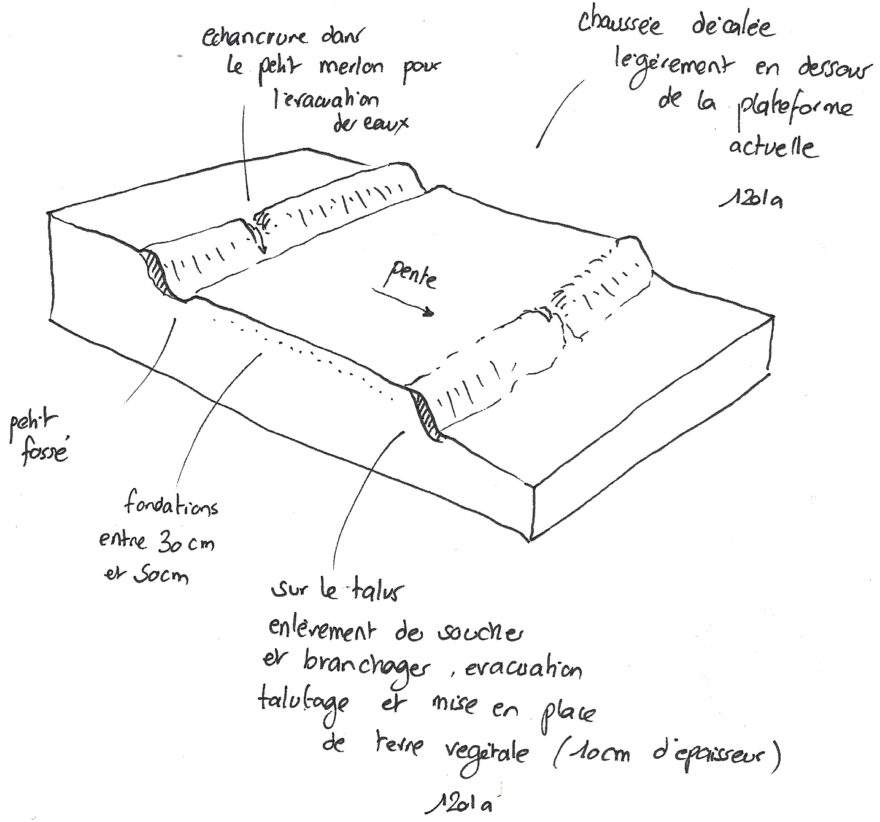 echancrure dans
le petit merlon pour
l'evacuation
des eaux
chaussée décalée
légèrement en dessous
de la plateforme
actuelle
pente
petit
fossé
fondations
entre 30 cm
et 50cm
sur le talus
enlèvement de souches
et branchages, evacuation
talutage et mise en place
de terre vegétale (10cm d'épaisseur)